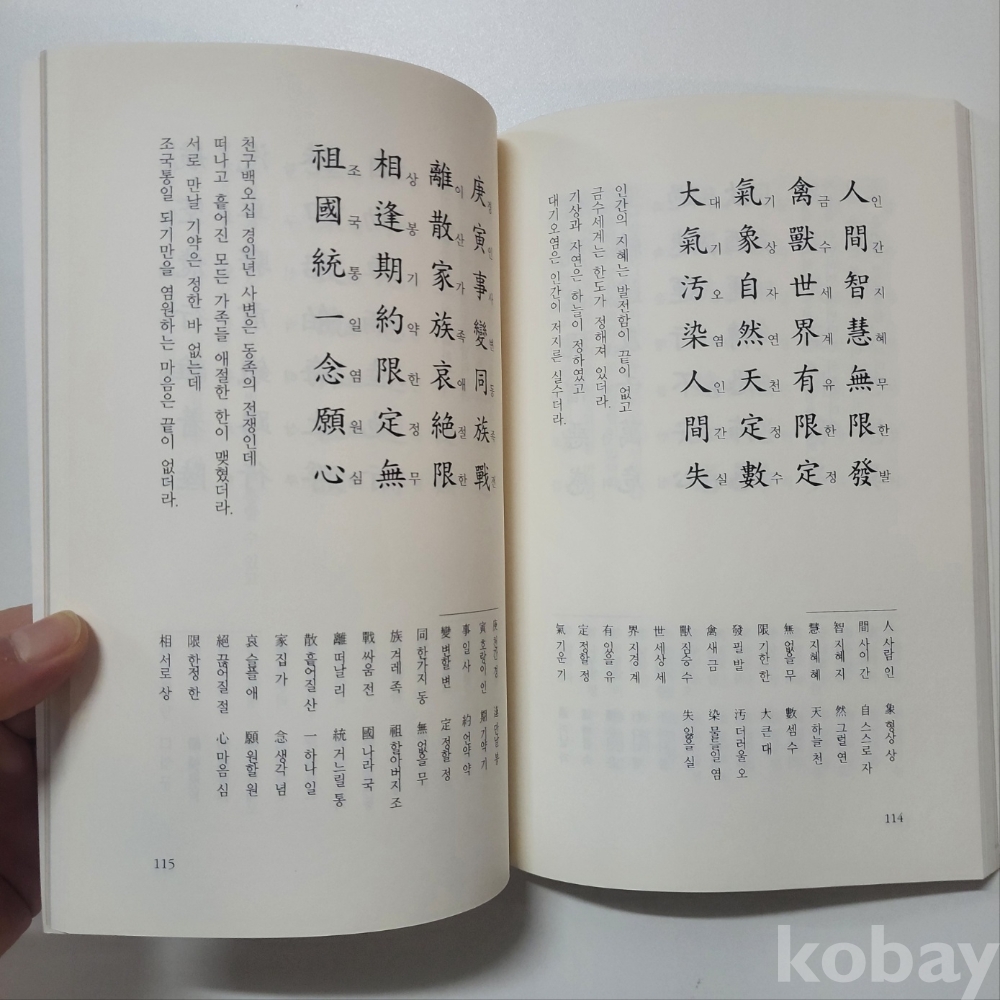 人間智慧無限發
인간지혜무한발
禽獸世界有限定
금수세계유한정
氣象自然天定數
기상자연천정수
大氣汚染人間失
대기오염인간실
인간의 지혜는 발전함이 끝이 없고
금수세계는 한도가 정해져 있더라.
기상과 자연은 하늘이 정하였고
대기오염은 인간이 저지른 실수더라.
人 사람 인
間 사이 간
智 지혜 지
慧 지혜 혜
無 없을 무
限 기한 한
發 필 발
禽 새 금
獸 짐승 수
世 세상 세
界 지경 계
有 있을 유
定 정할 정
氣 기운 기
象 형상 상
自 스스로 자
然 그럴 연
天 하늘 천
數 셈 수
大 큰 대
汚 더러울 오
染 물들일 염
失 잃을 실
114
庚寅事變同族戰
경인사변동족전
離散家族哀絶限
이산가족애절한
相逢期約限定無
상봉기약한정무
祖國統一念願心
조국통일염원심
천구백오십 경인년 사변은 동족의 전쟁인데
떠나고 흩어진 모든 가족들 애절한 한이 맺혔더라.
서로 만날 기약은 정한 바 없는데
조국통일 되기만을 염원하는 마음은 끝이 없더라.
寅 호랑이 인
事 일 사
變 변할 변
同 한가지 동
族 겨레 족
戰 싸움 전
離 떠날 리
散 흩어질 산
家 집 가
哀 슬플 애
絕 끊어질 절
限 한정 한
相 서로 상
逢 만날 봉
期 기약 기
約 언약 약
定 정할 정
無 없을 무
祖 할아버지 조
國 나라 국
統 거느릴 통
一 하나 일
念 생각 념
願 원할 원
心 마음 심
115
kobay